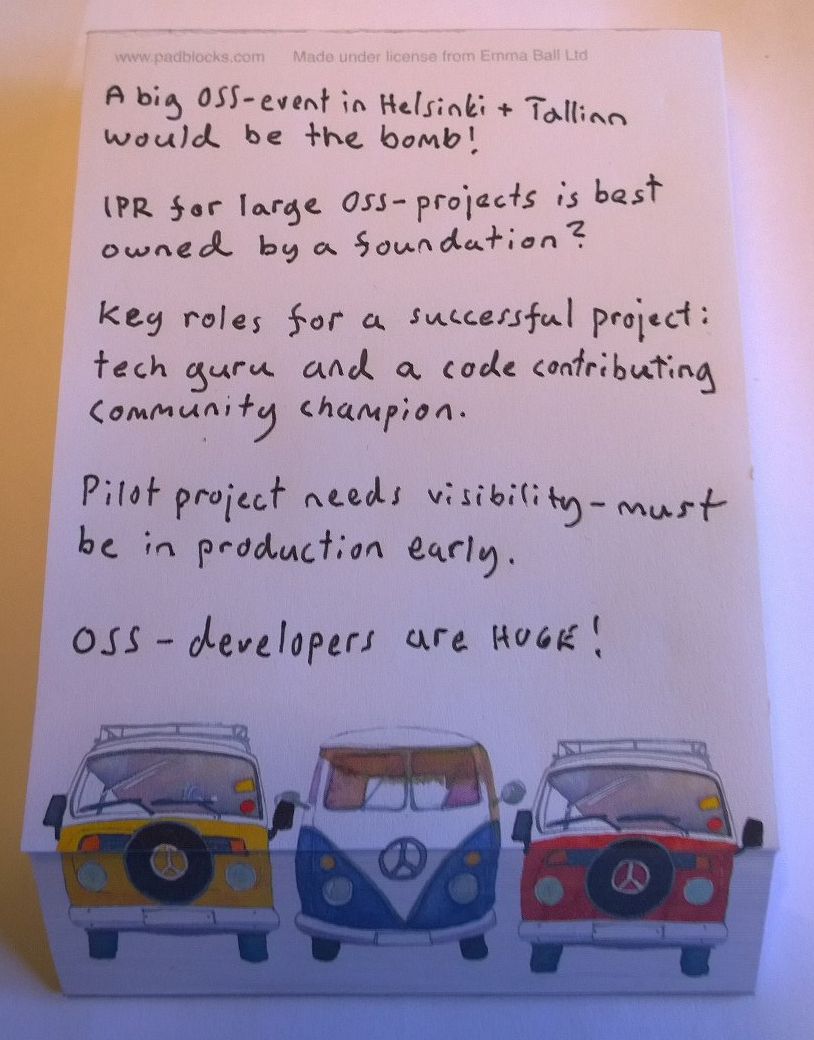 www.padblocks.com Made under license from Emma Ball Ltd
A big OSS-event in Helsinki + Tallinn
would be the bomb!
IPR for large OSS-projects is best
owned by a foundation?
Key roles for a successful project:
tech guru and a code contributing
community champion.
Pilot project needs visibility - must
be in production early.
OSS - developers are HUGE!